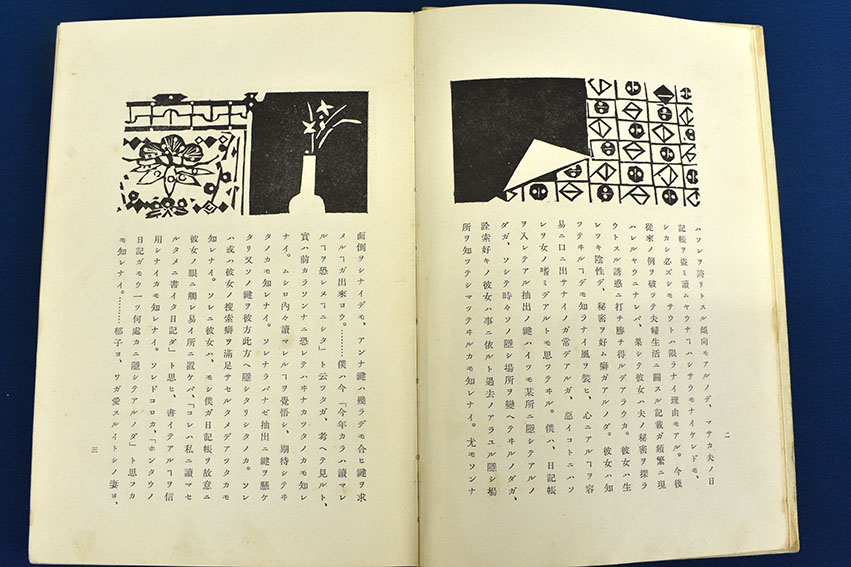 ハソレヲ誇リトスル傾向モアルノデ、マサカ夫ノ日
記帳ヲ盗ミ讀ムヤウナヿハシサウモナイケレドモ、
シカシ必ズシモサウトハ限ラナイ理由モアル。今後
從來ノ例ヲ破ツテ夫婦生活ニ關スル記載ガ頻繁ニ現
ハレルヤウニナレバ、果シテ彼女ハ夫ノ秘密ヲ探ラ
ウトスル誘惑ニ打チ勝チ得ルデアラウカ。彼女ハ生
レツキ陰性デ、秘密ヲ好ム癖ガアルノダ。彼女ハ知
ツテヰルヿデモ知ラナイ風ヲ裝ヒ、心ニアルヿヲ容
易ニ口ニ出サナイノガ常デアルガ、惡イコトニハソ
レヲ女ノ嗜ミデアルトモ思ツテヰル。僕ハ、日記帳
ヲ入レテアル抽出ノ鍵ハイツモ某所ニ隱シテアルノ
ダガ、ソシテ時々ソノ隱シ場所ヲ變ヘテヰルノダガ、
詮索好キノ彼女ハ事ニ依ルト過去ノアラユル隱シ場
所ヲ知ツテシマツテヰルカモ知レナイ。尤モソンナ
二
面倒ヲシナイデモ、アンナ鍵ハ幾ラデモ合ヒ鍵ヲ求
メルヿガ出來ヨウ。………僕ハ今「今年カラハ讀マレ
ルヿヲ恐レヌヿニシタ」ト云ツタガ、考ヘテ見ルト、
實ハ前カラソンナニ恐レテハヰナカツタノカモ知レ
ナイ。ムシロ内々讀マレルヿヲ覺悟シ、期待シテヰ
タノカモ知レナイ。ソレナラバナゼ抽出ニ鍵ヲ懸ケ
タリ又ソノ鍵ヲ彼方此方ヘ隱シタリシタノカ。ソレ
ハ或ハ彼女ノ搜索癖ヲ滿足サセルタメデアツタカモ
知レナイ。ソレニ彼女ハ、モシ僕ガ日記帳ヲ故意ニ
彼女ノ眼ニ觸レ易イ所ニ置ケバ、「コレハ私ニ讀マセ
ルタメニ書イタ日記ダ」ト思ヒ、書イテアルヿヲ信
用シナイカモ知レナイ。ソレドコロカ、「ホンタウノ
日記ガモウ一ツ何處カニ隱シテアルノダ」ト思フカ
モ知レナイ。………郁子ヨ、ワガ愛スルイトシノ妻ヨ、
三